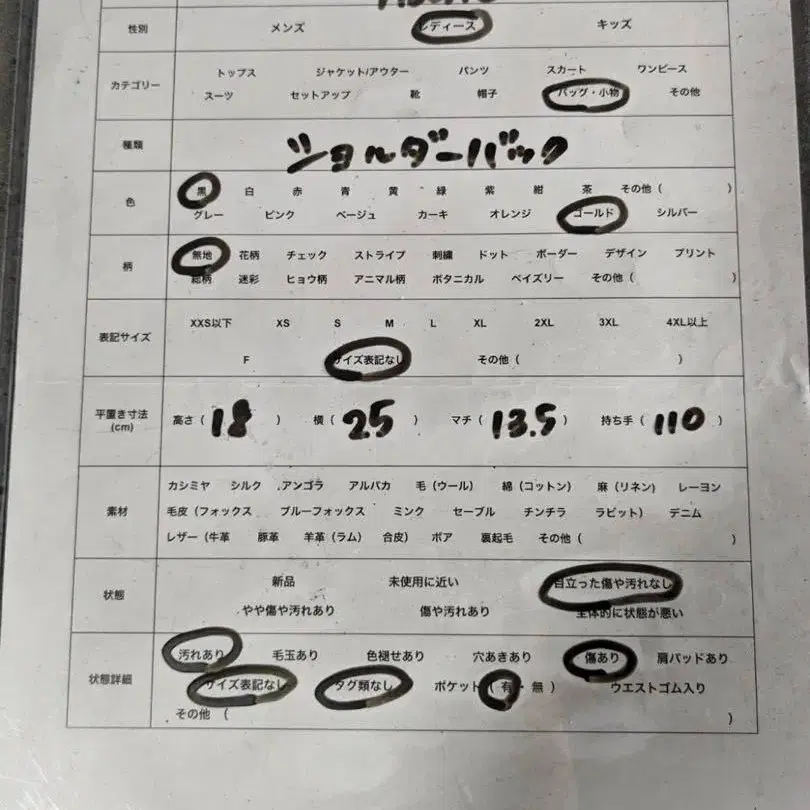 性別 メンズ レディース キッズ
カテゴリー トップス ジャケット/アウター パンツ スカート ワンピース
スーツ セットアップ 靴 帽子 バッグ・小物 その他
種類 ショルダーバック
色 黒 白 赤 青 黄 緑 紫 紺 茶 その他 ( )
グレー ピンク ベージュ カーキ オレンジ ゴールド シルバー
柄 無地 花柄 チェック ストライプ 刺繍 ドット ボーダー デザイン プリント
総柄 迷彩 ヒョウ柄 アニマル柄 ボタニカル ペイズリー その他 ( )
表記サイズ XXS以下 XS S M L XL 2XL 3XL 4XL以上
F サイズ表記なし その他 ( )
平置き寸法 (cm) 高さ ( 18 ) 横 ( 25 ) マチ ( 13.5 ) 持ち手 ( 110 )
素材 カシミヤ シルク アンゴラ アルパカ 毛 (ウール) 綿 (コットン) 麻 (リネン) レーヨン
毛皮 (フォックス ブルーフォックス ミンク セーブル チンチラ ラビット) デニム
レザー (牛革 豚革 羊革 (ラム) 合皮) ボア 裏起毛 その他 ( )
状態 新品 未使用に近い 目立った傷や汚れなし
やや傷や汚れあり 傷や汚れあり 全体的に状態が悪い
状態詳細 汚れあり 毛玉あり 色褪せあり 穴あきあり 傷あり 肩パッドあり
サイズ表記なし タグ類なし ポケット ( 有・無 ) ウエストゴム入り
その他 ( )